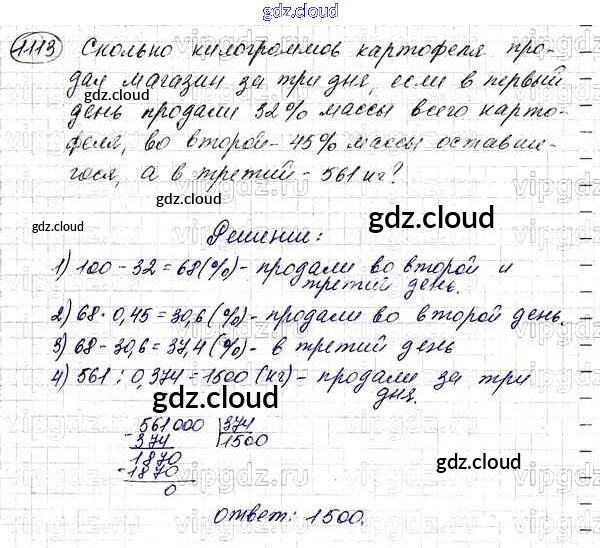 gdz.cloud
1113 Сколько килограммов картофеля про-
дал магазин за три дня, если в первый
gdz.cloud
день продали 32% массы всего карто-
феля, во второй - 45% массы оставше-
гося, а в третий - 561 кг?
gdz.cloud
gdz.cloud
gdz.cloud
Решение:
1) 100 - 32 = 68 (%) - продали во второй и
третий день.
2) 68 · 0,45 = 30,6 (%) - продали во второй день.
3) 68 - 30,6 = 37,4 (%) - в третий день
4) 561 : 0,374 = 1500 (кг) - продали за три
дня.
gdz.cloud
gdz.cloud
- 561000 | 374
374 | 1500
1870
- 1870
0
gdz.cloud
Ответ: 1500.